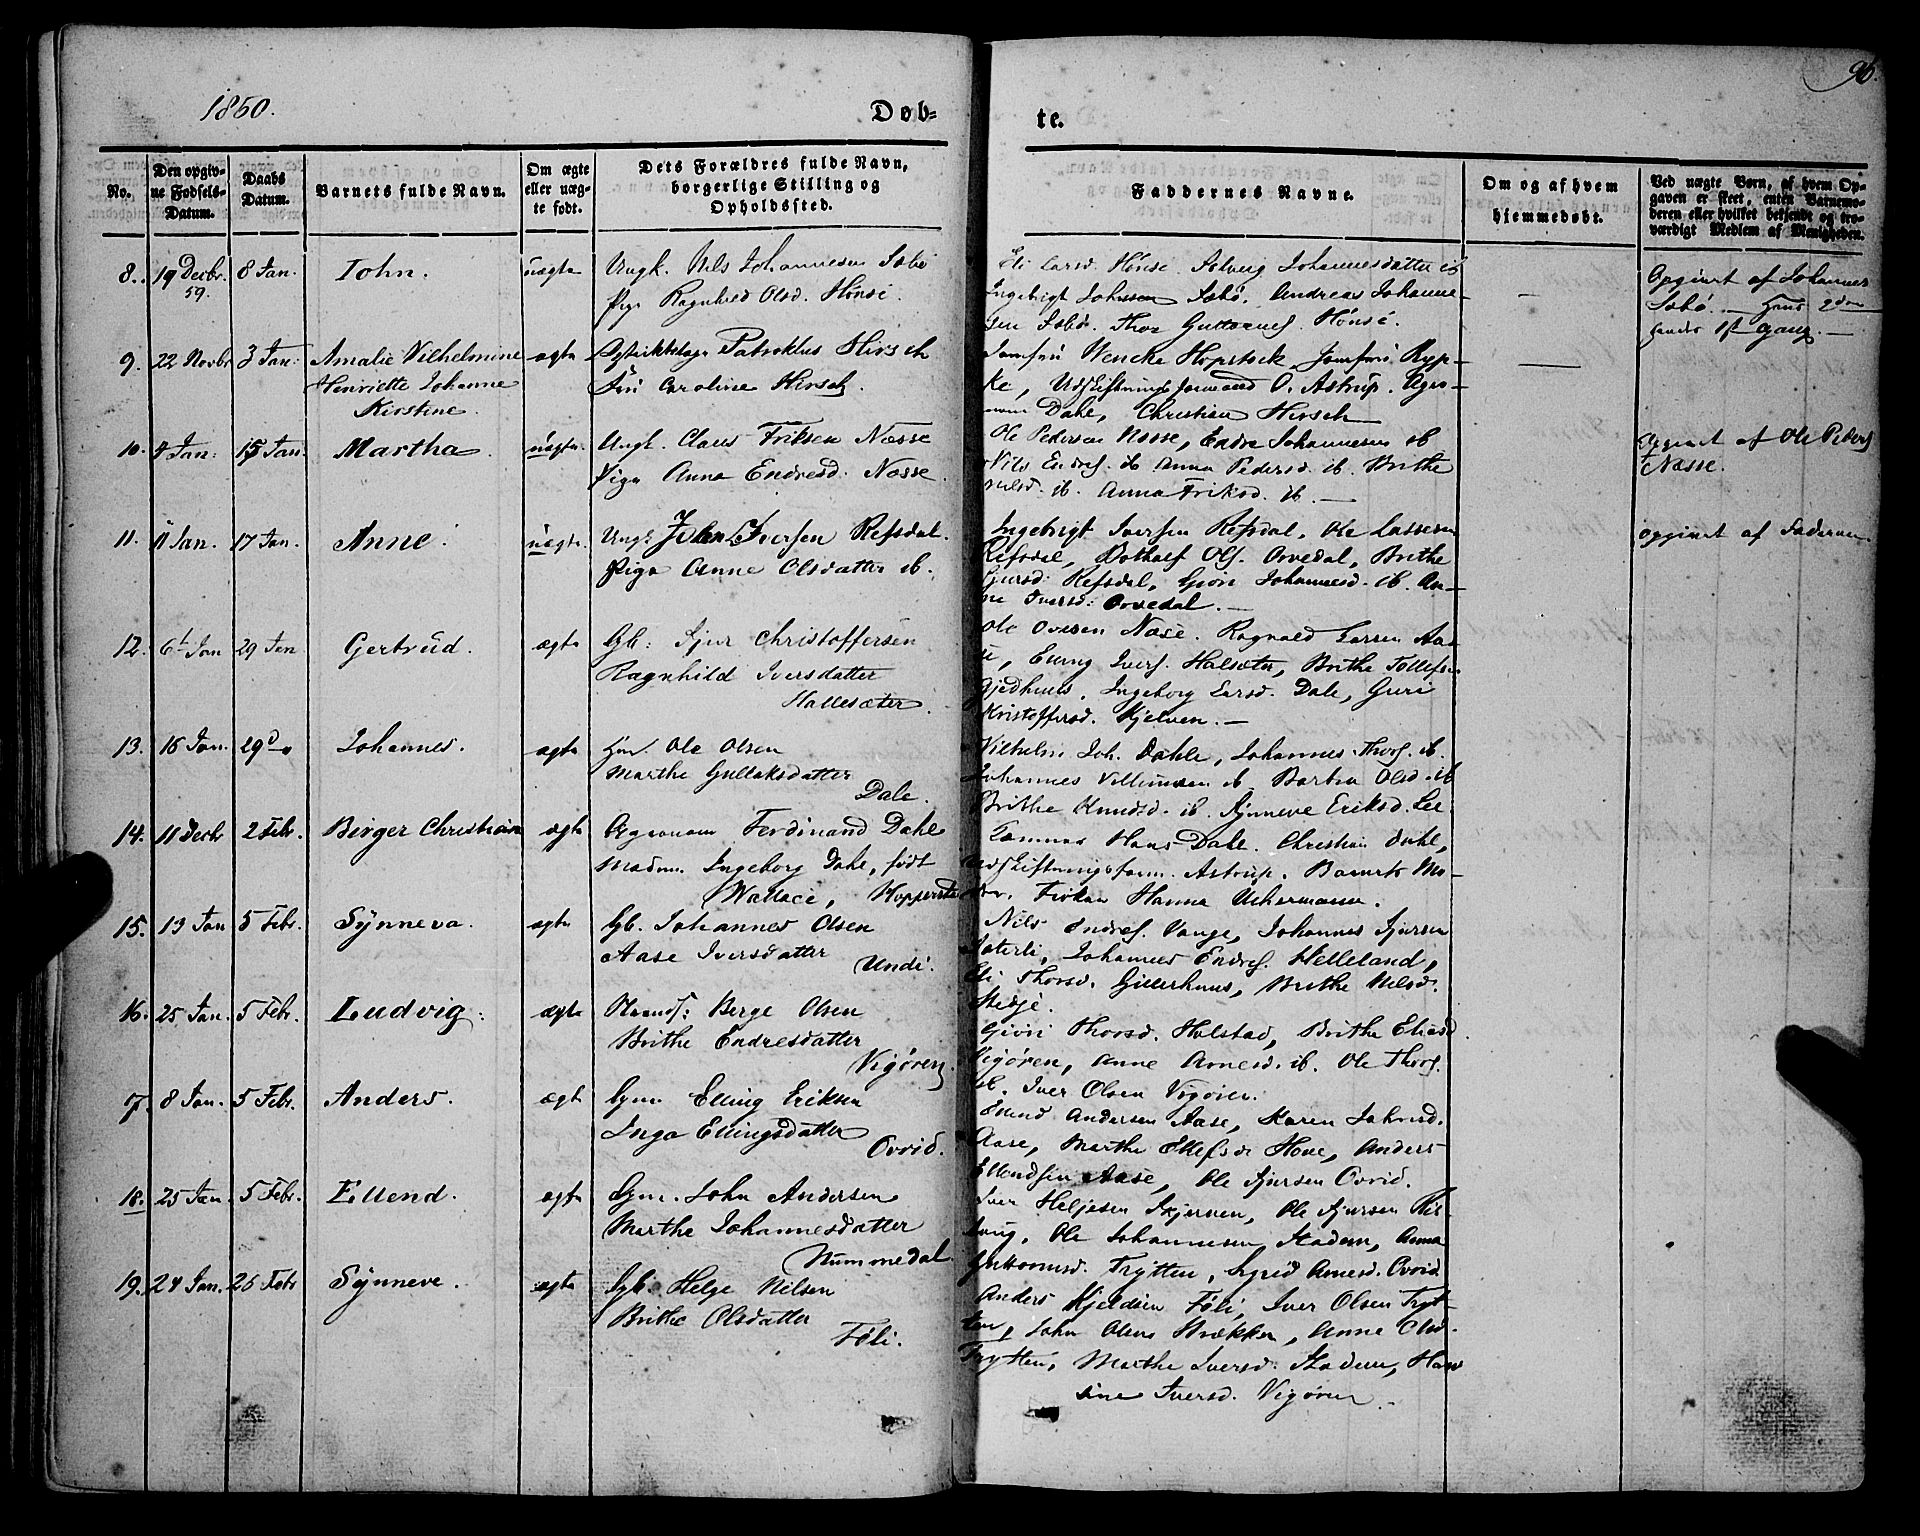 1850. Døb-
te. 96.
No.
Den opgiv-
ne Fødsels-
Datum.
Daabs
Datum.
Barnets fulde Navn.
Om ægte
eller uæg-
te født.
Dets Forældres fulde Navn,
borgerlige Stilling og
Opholdssted.
Faddernes Navne.
Om og af hvem
hjemmedøbt.
Ved uægte Børn, af hvem Op-
gaven er skeet, enten Barnemo-
deren eller hvilket bekjendt og tro-
værdigt Medlem af Menigheden.
8. 19 Decbr. 8 Jan. John. uægte Ungk. Nils Johannesen Sæbø
59. Pige Ragnhild Olsd. Hønsi.
Eli Larsd. Hønsi. Solveig Johannesdatter ib
Ingebrigt Johnsen Sæbø. Andreas Johanne-
sen Sæbø. Thor Guttormsf. Hønsi.
—
Opgivet af Johannes
Sæbø. — Hans 2den
hendes 1st Gang. —
9. 22 Novbr 3 Jan: Amalie Vilhelmine ægte Distriktslæge Patroklus Hirsch
Henriette Johanne Fru Caroline Hirsch.
Kirstine.
Jomfru Wencke Hopstock, Jomfru Ryp-
ke, Udskiftningsformand O. Astrup. Agro-
nom Dahl, Christian Hirsch
—
10. 4 Jan: 15 Jan. Martha. uægte. Ungk. Claus Eriksen Næsse
Pige Anna Endresd. Næsse.
Ole Pedersen Næsse, Endre Johannesen ib
Nils Endresf. ib Anna Pedersd. ib. Brithe
Nilsd. ib. Anna Eriksd. ib. —
Opgivet af Ole Peders
Næsse.
11. 11 Jan. 17 Jan. Anne. uægte. Ungk. John Iversen Refsdal.
Pige Anne Olsdatter ib.
Ingebrigt Iversen Refsdal, Ole Lassesen
Refsdal, Olsf. Orvedal, Brithe
Sjursd: Refsdal, Giøri Johannesd. ib. An-
ne Iversd: Orvedal. —
opgivet af Faderen.
12. 6t Jan 29 Jan Gertrud. ægte Gb: Sjur Christoffersen
Ragnhild Iversdatter
Hallesæter.
Ole Ovesen Næse. Ragnald Larsen Aa-
Elling Iversf. Halsæter, Brithe Tollefsd.
Gjedhuus. Ingeborg Larsd. Dale, Guri
Kristoffersd. Kjelven. —
13. 16 Jan. 29 do Johannes. ægte Hmd. Ole Olsen
Marthe Gullaksdatter
Dale.
Vilhelm Joh. Dahle, Johannes Thorsf. ib.
Johannes Villumsen ib Barbra Olsd. ib
Brithe Knudsd. ib. Synneve Eriksd. Lee
14. 11 Decbr 2 Febr. Birger Christian ægte Agronom Ferdinand Dahl
Madm. Ingeborg Dahl, født
Wallace, Hopperstad
Hans Dahl. Christian Dahl,
Udskiftningsform. Astrup. Barnets Mo-
der. Frøken Hanna Uchermann.
15. 13 Jan 5 Febr. Synneva. ægte Gb. Johannes Olsen
Aase Iversdatter
Undi.
Nils Endresf. Vange, Johannes Sjursen
Sæterli, Johannes Endresf. Helleland,
Eli Thorsd. Gillerhuus, Brithe Nilsd.
Stedje.
16. 25 Jan. 5 Febr. Ludvig. ægte Strands: Berge Olsen
Brithe Endresdatter
Vigøren.
Giøri Thorsd. Holstad, Brithe Eliasd
Vigøren, Anne Arnesd. ib. Ole Thorsf.
ib. Iver Olsen Vigøren.
17. 8 Jan. 5 Febr. Anders. ægte Gm. Elling Eriksen
Inga Ellingsdatter
Ovrid.
Erland Andersen Aase, Karen Johnsd.
Aase, Marthe Ellefsd. Hove, Anders
Ellendsen Aase, Ole Sjursen Ovrid.
18. 25 Jan. 5 Febr. Ellend. ægte Gm. John Andersen
Marthe Johannesdatter
Nummedal
Iver Heljesen Skjerven, Ole Sjursen
Ole Johannesen Stadem, Anna
Guttormsd. Trytten, Sigrid Arnesd. Ovrid
19. 24 Jan. 26 Febr Synneve. ægte Gb. Helge Nilsen
Brithe Olsdatter
Føli.
Anders Kjeldsen Føli, Iver Olsen Tryt-
ten, John Olsen Brækken, Anne Olsd.
Trytten, Marthe Iversd. Stadem, Han-
sine Iversd. Vigøren.